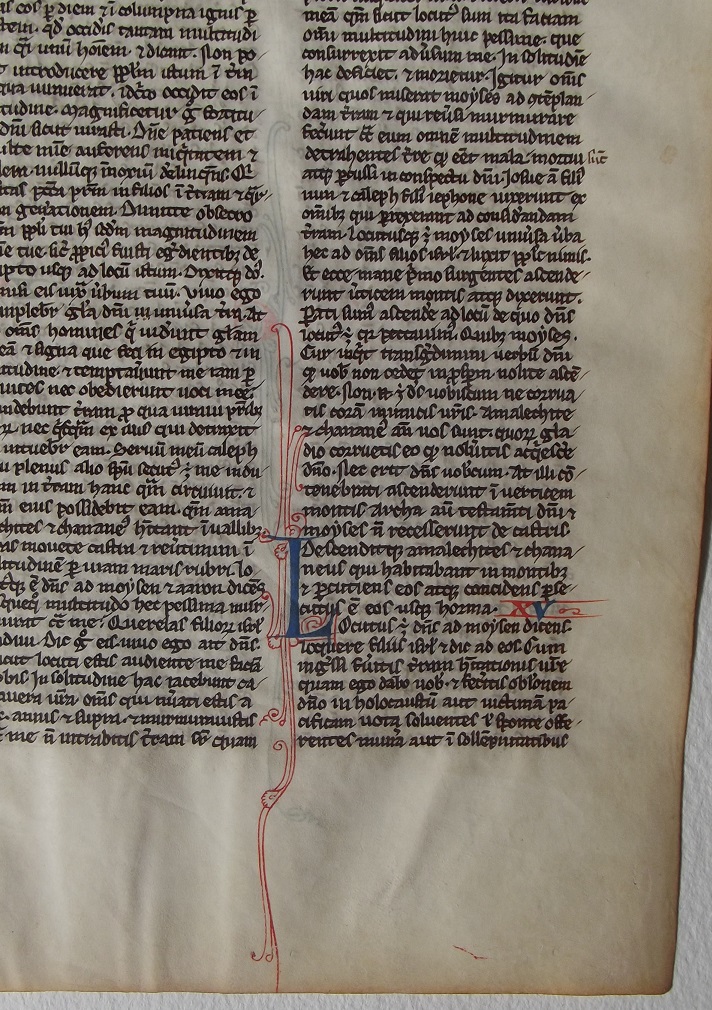 es cos p̲ diem ⁊ ī columpna ignis p̲
qđ occidis tantam multitudi
q̄i unū hoīem. ⁊ dicant. Non po
introducere pplm̄ istum ī t̄rā
qua iurauerat. idc̄o occidit eos ī
tudine. Magnificetur g̊ fortitu
dn̄i sicut iurasti. Dn̄e patiens et
mīe auferens iniq̄tatem ⁊
nulluq̄ innoxiū delinq̄ns. Q̄i
tas pc̄ta pr̄m in filios ī t̄ciam ⁊ q̄r
gn̄ationem. Dimitte obsecro
ppl̄i tui hꝰ scd̄m magnitudinem
tue. sic̄ ppiciꝰ fuisti egr̄dientibꝫ de
ipto usq̨ ad locū istum. Dixitq̨ dn̄s.
misi eis iux̄ ūbum tuū. Viuo ego
implebit̾ gl̄a dn̄i uniūsa t̄ra. At
omīs homines q̄i uid̾unt gl̄am
eā ⁊ signa que feci in egipto ⁊ in
tudine. ⁊ temptauerunt me iam p̲
uices nec obedierunt uoci mee.
uidebunt t̄ram p̱ qua iuraui pr̄ibꝫ
nec q̄sq̄m ex illis qui detraxit
intuebit̾ eam. Seruū meū caleph
plenus alio sp̄u secutꝰ ē me indu
in t̄ram hanc q̄m circuiuit. ⁊
eius possidebit eam. q̄m ama
chites ⁊ chananeꝰ h̄itant ī uallibꝫ
as mouete castra ⁊ reūtimini ī
litudinē p̲ uiam maris rubri. Lo
tꝰq̨ ē dn̄s ad moysen ⁊ aaron dicēs
usqueq̊ multitudo hec pessima mur
murat cō me. Querelas filioꝝ isr̄l
udiui. Dic g̊ eis uiuo ego ait dn̄s.
icut locuti estis audiente me faciā
obis. In solitudine hac iacebunt ca
auera ur̄a. omīs qui nūati estis a
annis ⁊ supra. ⁊ murmurastis
me. n̄ intrabitis t̄ram sup̲ quam
meā. q̄m sicut locutꝰ sum ita faciam
omī multitudini huic pessime. que
consurrexit adūsum me. In solitudie
hac deficiet. ⁊ morietur. Igitur om̄s
uiri quos miserat moyses ad cōtēplan
dam t̄ram ⁊ qui reūsi murmurare
fec̾unt cō eum omnē multitudinem
detrahentes t̄re q̨ eēt mala. mortui sūt
atq̨ p̲cussi in conspectu dn̄i. Iosue aū filiꝰ
nun ⁊ caleph filiꝰ iephone uixerunt ex
om̄ibꝫ qui prexerant ad considerandam
t̄ram. Locutusq̨ ē moyses uniūsa ūba
hec ad omīs filios isr̄l. ⁊ luxit pplꝰ nimis.
Et ecce mane p̱mo surgentes ascende
runt ūticem montis atq̨ dixerunt.
Parati sumꝰ ascende ad locū de quo dn̄s
locutꝰ ē. q̨ peccauimꝰ. Quibꝫ moyses.
Cur inq̄it transgr̄dimini uerbū dn̄i
q̊ uob̄ non cedet in p̱sp̲um. nolite ascē
dere. Non .n. ē dn̄s uobiscum. ne corrua
tis corā inimicis ur̄is. Amalechites
⁊ chananeꝰ aū uos sunt. quoꝝ gla
dio corruetis eo q̊ noluistis acq̄iesc̾e
dn̄o. Nec erit dn̄s uobcum. At illi cō
tenebrati ascenderunt ī verticem
montis. Archa aū testamīti dn̄i ⁊
moyses n̄ recesserunt de castris
Descenditq̨ amalechites ⁊ chana
neus qui habitabant in montibꝫ
⁊ p̲cutiens eos atq̨ concidens p̲se
cutus ē eos usq̨ horma. XV
Locutus ē dn̄s ad moysen dicens.
loquere filiis isr̄l ⁊ dic ad eos. Cum
ingr̄ssi fūitis t̄ram h̄itationis ur̄e
quam ego dabo uob̄. ⁊ fec̾itis oblōnem
dn̄o in holocaustū aut uictimā pa
cificam uota soluentes ł sponte offe
rentes munā aut ī sollēpnitatibus